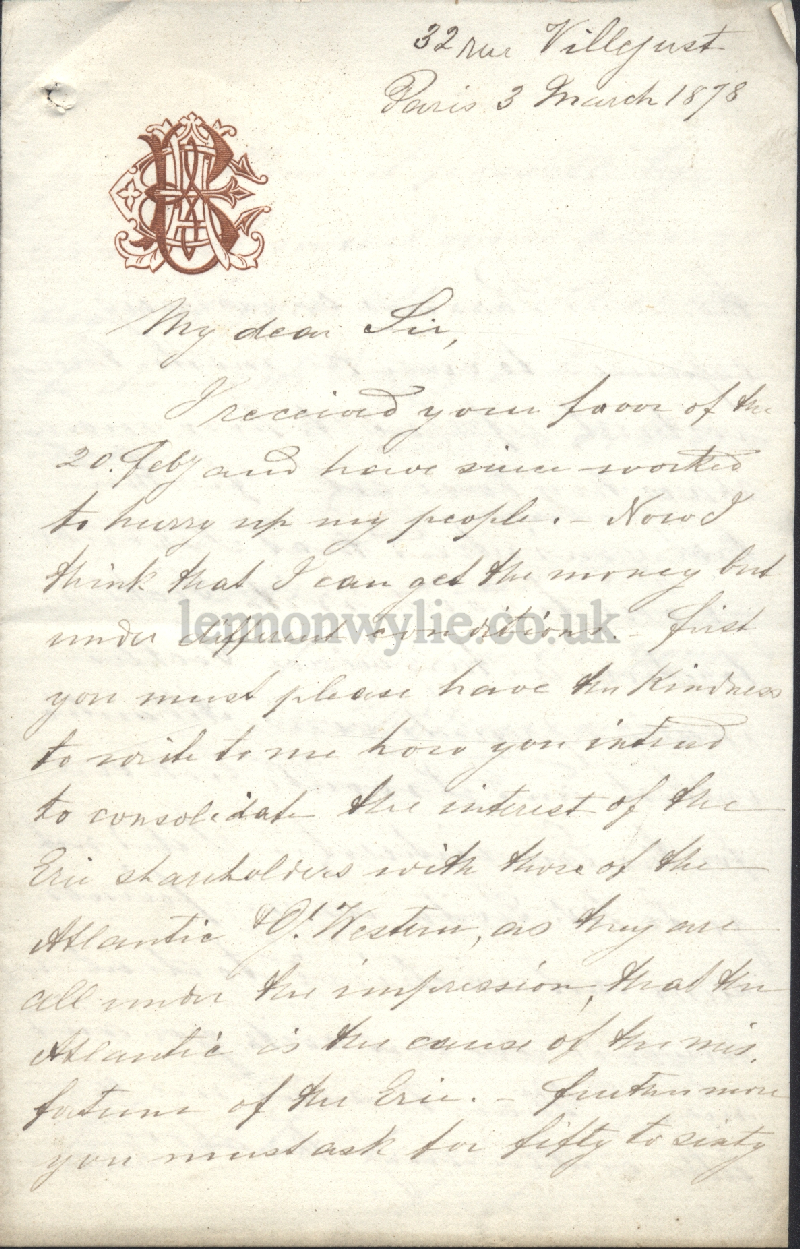 32 rue Villejust
Paris 3 March 1878
My dear Sir,
I received your favor of the
20. Feby and have since worked
to hurry up my people. – Now I
think that I can get the money but
under different conditions. – first
lennonwylie.co.uk
you must please have the Kindness
to write to me how you intend
to consolidate the interest of the
Erie shareholders with those of the
Atlantic & Gt. Western, as they are
all under the impression, that the
Atlantic is the cause of the mis.
fortune of the Erie. – furthermore
you must ask for fifty to sixty